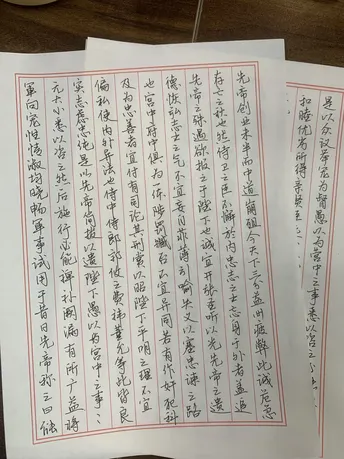 先帝创业未半而中道崩殂今天下三分益州疲弊此诚危急
存亡之秋也然侍卫之臣不懈於内忠志之士忘身于外者盖追
先帝之殊遇欲报之于陛下也诚宜开张圣听以光先帝之遗
德恢弘志士之气不宜妄自菲薄引喻失义以塞忠谏之路
也宫中府中俱为一体陟罚臧否不宜异同若有作奸犯科
及为忠善者宜付有司论其刑赏以昭陛下平明之理不宜
偏私使内外异法也侍中侍郎郭攸之费祎董允等此皆良
实志虑忠纯是以先帝简拔以遗陛下愚以为宫中之事〻
无大小悉以咨之然后施行必能裨补阙漏有所广益将
军向宠性情淑均晓畅军事试用于昔日先帝称之曰能
是以众议举宠为督愚以为宫中之事悉以咨之
和睦优劣所得亲贤臣